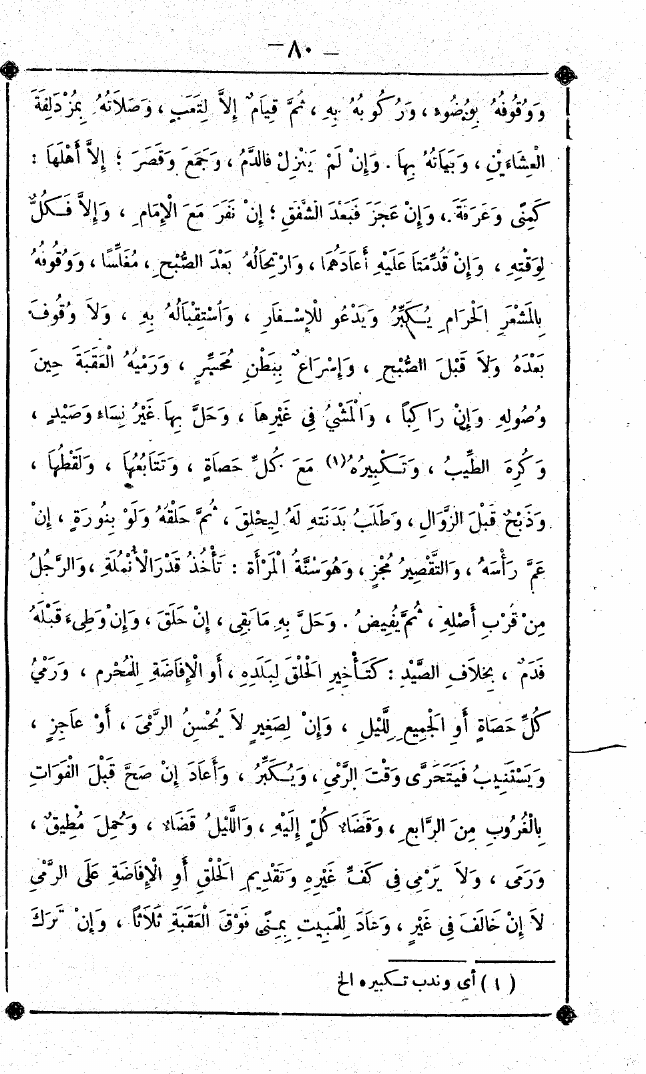 — ٨٠ —
وَوُقُوفُهُ بِوُضُوءٍ ، وَرُكُوبُهُ بِهِ ، ثُمَّ قِيَامٌ إِلاَّ لِتَعَبٍ ، وَصَلاَتُهُ بِمُزْدَلِفَةَ
الْعِشَاءَيْنِ ، وَبَيَاتُهُ بِهَا . وَإِنْ لَمْ يَنْزِلْ فالدَّمُ ، وَجَمَعَ وَقَصَرَ ؛ إِلاَّ أَهْلَهَا :
كَمِنًى وَعَرَفَةَ ، وَإِنْ عَجَزَ فَبَعْدَ الشَّفَقِ ؛ إِنْ نَفَرَ مَعَ الْإِمَامِ ، وَإِلاَّ فَكُلٌّ
لِوَقْتِهِ ، وَإِنْ قُدِّمَتَا عَلَيْهِ أَعَادَهُمَا ، وَارْتِحَالُهُ بَعْدَ الصُّبْحِ ، مُغَلِّسًا ، وَوُقُوفُهُ
بِالْمَشْعَرِ الْحَرَامِ يُكَبِّرُ وَيَدْعُو لِلْإِسْفَارِ ، وَاسْتِقْبَالُهُ بِهِ ، وَلاَ وُقُوفَ
بَعْدَهُ وَلاَ قَبْلَ الصُّبْحِ ، وَإِسْرَاعٌ بِبَطْنِ مُحَسِّرٍ ، وَرَمْيُهُ الْعَقَبَةَ حِينَ
وُصُولِهِ وَإِنْ رَاكِبًا ، وَالْمَشْيُ فِي غَيْرِهَا ، وَحَلَّ بِهَا غَيْرُ نِسَاءٍ وَصَيْدٍ ،
وَكُرِهَ الطِّيبُ ، وَتَكْبِيرُهُ (١) مَعَ كُلِّ حَصَاةٍ ، وَتَتَابُعُهَا ، وَلَقْطُهَا ،
وَذَبْحٌ قَبْلَ الزَّوَالِ ، وَطَلَبُ بَدَنَتِهِ لَهُ لِيَحْلِقَ ، ثُمَّ حَلْقُهُ وَلَوْ بِنُورَةٍ ، إِنْ
عَمَّ رَأْسَهُ ، وَالتَّقْصِيرُ مُجْزٍ ، وَهُوَ سُنَّةُ الْمَرْأَةِ : تَأْخُذُ قَدْرَ الْأَنْمُلَةِ ، وَالرَّجُلُ
مِنْ قُرْبِ أَصْلِهِ ، ثُمَّ يُفِيضُ . وَحَلَّ بِهِ مَا بَقِيَ ، إِنْ حَلَقَ ، وَإِنْ وَطِيءَ قَبْلَهُ
فَدَمٌ ، بِخِلاَفِ الصَّيْدِ : كَتَأْخِيرِ الْحَلْقِ لِبَلَدِهِ ، أَوِ الْإِفَاضَةِ لِلْمُحْرِمِ ، وَرَمْيُ
كُلِّ حَصَاةٍ أَوِ الْجَمِيعِ لِلَّيْلِ ، وَإِنْ لِصَغِيرٍ لاَ يُحْسِنُ الرَّمْىَ ، أَوْ عَاجِزٍ ،
وَيَسْتَنِيبُ فَيَتَحَرَّى وَقْتَ الرَّمْىِ ، وَيُكَبِّرُ ، وَأَعَادَ إِنْ صَحَّ قَبْلَ الْفَوَاتِ
بِالْغُرُوبِ مِنَ الرَّابِعِ ، وَقَضَاءُ كُلٍّ إِلَيْهِ ، وَاللَّيْلُ قَضَاءٌ ، وَحُمِلَ مُطِيقٌ ،
وَرَمَى ، وَلاَ يَرْمِى فِى كَفِّ غَيْرِهِ وَتَقْدِيمِ الْحَلْقِ أَوِ الْإِفَاضَةِ عَلَى الرَّمْىِ
لاَ إِنْ خَالَفَ فِى غَيْرٍ ، وَعَادَ لِلْمَبِيتِ بِمِنًى فَوْقَ الْعَقَبَةِ ثَلاَثًا ، وَإِنْ تَرَكَ
(١) أى وندب تكبيره الخ